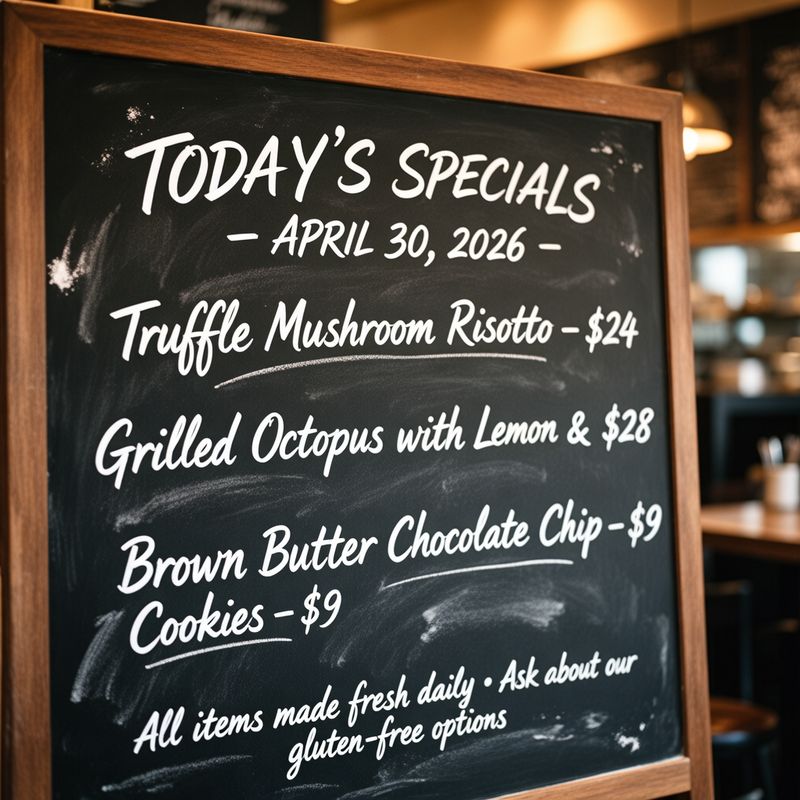 TODAY'S SPECIALS
– APRIL 30, 2026 –
Truffle Mushroom Risotto – $24
Grilled Octopus with Lemon & $28
Brown Butter Chocolate Chip – $9
Cookies – $9
All items made fresh daily • Ask about our
gluten-free options